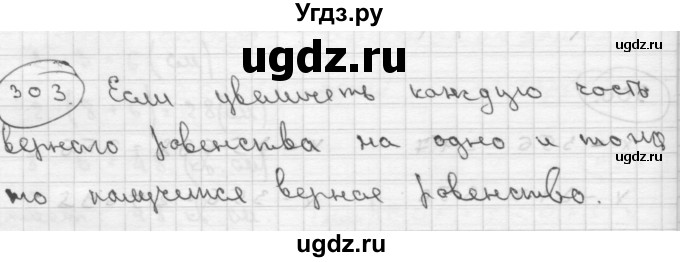 Угдз.ру
ugdz.ru
ugdz.ru
303. Если увеличеть каждую часть
верного равенства на одно и тоже
то получется верное равенство.
ugdz.ru
ugdz.ru